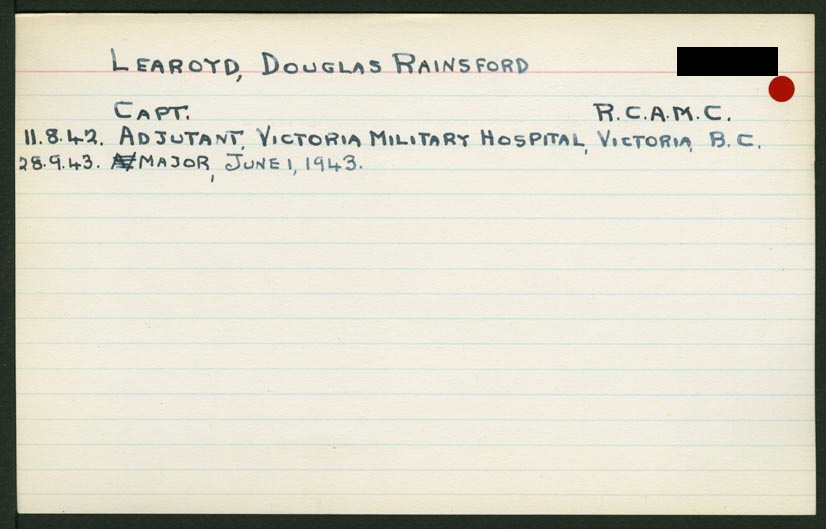 LEAROYD, DOUGLAS RAINSFORD
CAPT. R.C.A.M.C.
11.8.42. ADJUTANT, VICTORIA MILITARY HOSPITAL, VICTORIA, B.C.
28.9.43. MAJOR, JUNE 1, 1943.